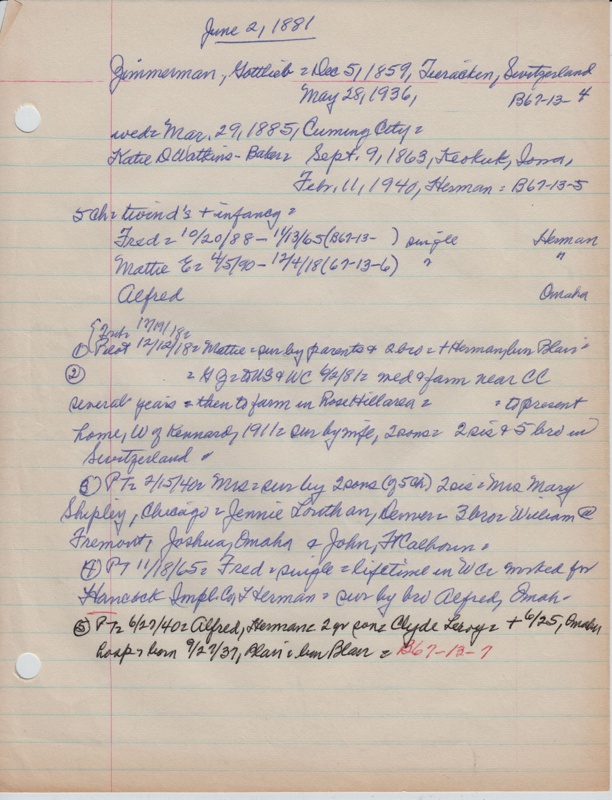 June 2, 1881
Zimmerman, Gottlieb = Dec 5, 1859, Switzerland
May 28, 1936, B67-13-4
wed = Mar. 29, 1885, Cuming City =
Katie D Watkins - Baker = Sept. 9, 1863, Keokuk, Iowa,
Febr. 11, 1940, Herman = B67-13-5
5 ch = + infancy =
Fred = 10/20/88 - 11/13/65 (B67-13- ) single Herman
Mattie E = 4/5/90 - 12/4/18 (67-13-6) " "
Alfred Omaha
12/19/18 =
① Pilot 12/12/18 = Mattie = sur by parents & 2 bro = + Herman, bur Blair =
② = G Z = to US & WC 6/2/81 = wed & farm near CC
several years = then to farm in Rose Hill area = = to present
home, W of Kennard, 1911 = sur by wife, 2 sons = 2 sis & 5 bro in
Switzerland "
③ PT = 2/15/40 = Mrs = sur by 2 sons (of 5 ch) 2 sis = Mrs Mary
Shipley, Chicago = Jennie Louthan, Denver = 3 bro = William @
Fremont, Joshua, Omaha & John, Ft Calhoun =
④ PT 11/18/65 = Fred = single = lifetime in WC = worked for
Hancock Impl. Co, Herman = sur by bro Alfred, Omah-
⑤ PT = 6/27/40 = Alfred, Herman = 2 yr son = Clyde Leroy = + 6/25, Omaha
hosp = born 9/27/37, Blair = bur Blair = B67-13-7